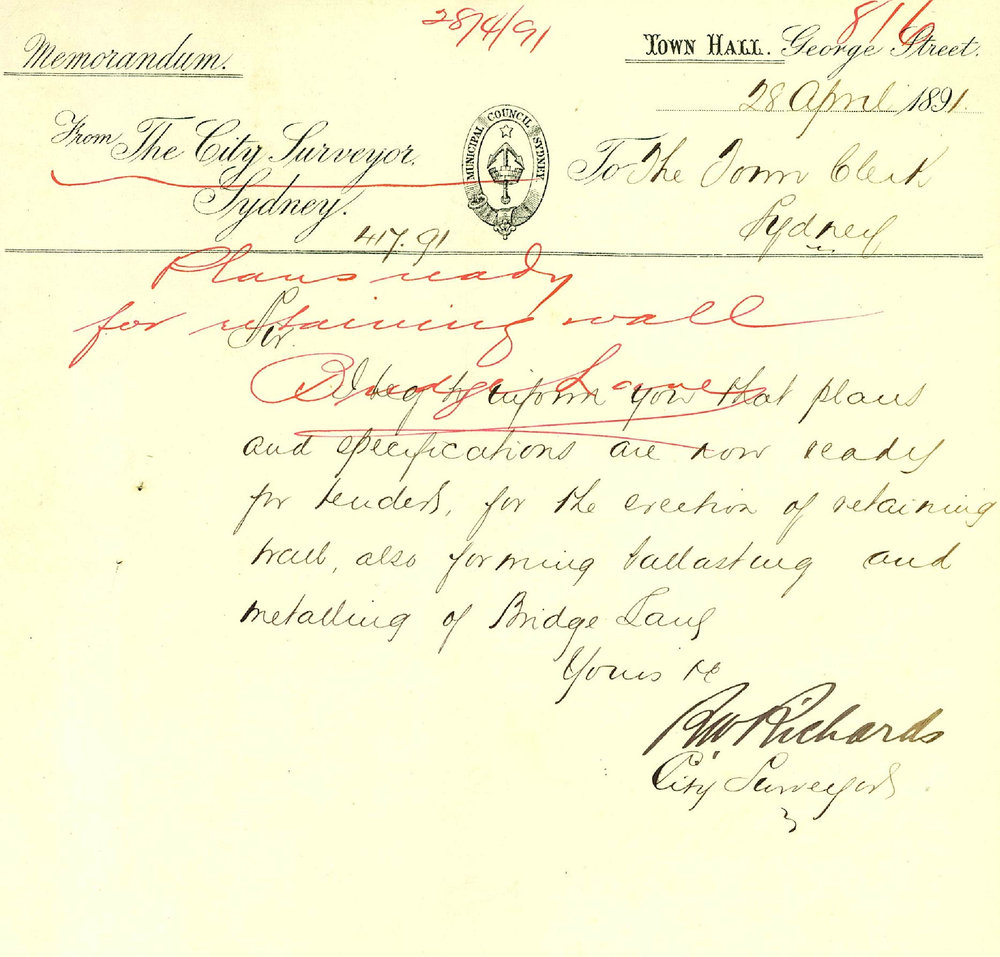 28/4/91
816
Memorandum.
TOWN HALL. George Street.
28 April 1891.
From The City Surveyor.
Sydney.
MUNICIPAL COUNCIL SYDNEY
To The Town Clerk
Sydney
417.91
Plans ready
for retaining wall
Bridge Lane
Sir
I beg to inform you that plans
and specifications are now ready
for tenders, for the erection of retaining
wall, also forming ballasting and
metalling of Bridge Lane
Yours &c
RW Richards
City Surveyor